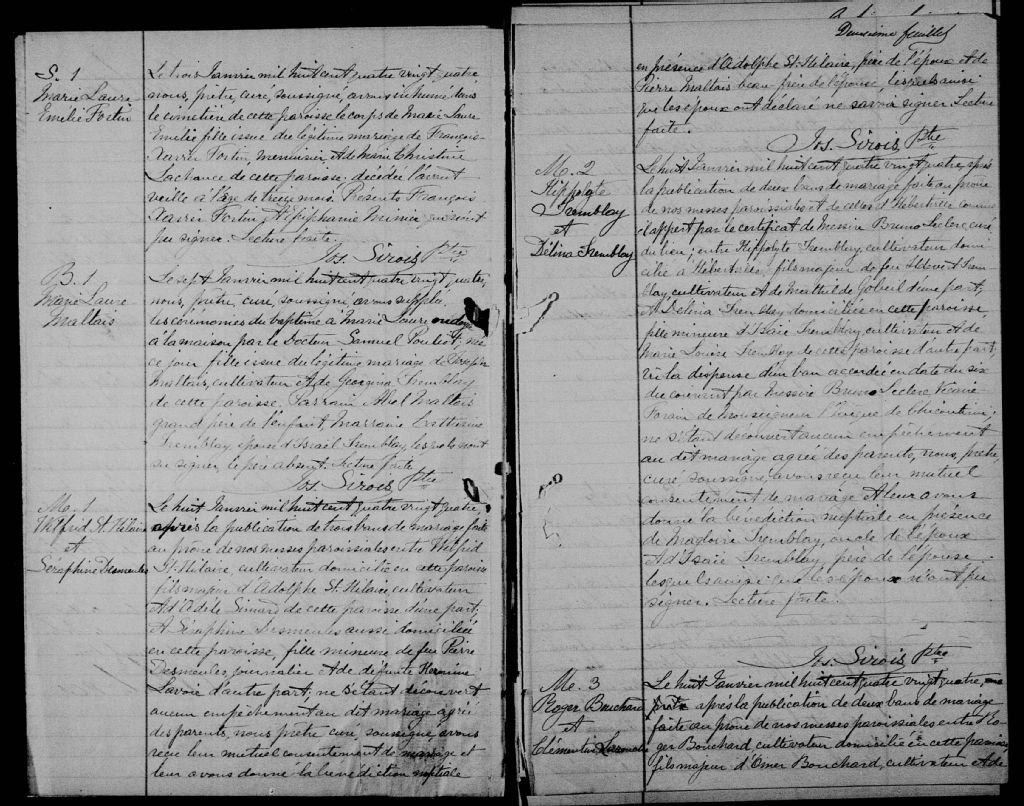 S. 1
Marie Laure
Emelie Fortin
Le trois Janvier mil huit cent quatre vingt quatre
nous, prêtre, curé, soussigné, avons inhumé dans
le cimetière de cette paroisse le corps de Marie Laure
Emilie fille issue du légitime mariage de François
Xavier Fortin, menuisier et de Marie Christine
Lachance de cette paroisse décédée l'avant
veille à l'âge de treize mois. Présents François
Xavier Fortin et Epiphanie
pu signer. Lecture faite.
Jos. Sirois Ptre
B. 1
Marie Laure
Maltais
Le sept Janvier mil huit cent quatre vingt quatre,
nous, prêtre, curé, soussigné avons suppléé
les cérémonies du baptême à Marie Laure ondoyée
à la maison par le Docteur Samuel Pouliot, née
ce jour fille issue du légitime mariage de Joseph
Maltais, cultivateur et de Georgina Tremblay
de cette paroisse. Parrain Abel Maltais
grand père de l'enfant Marraine
Tremblay, épouse d'Israël Tremblay, lesquels n'ont
su signer, le père absent. Lecture faite
Jos. Sirois Ptre
M. 1
Wilfrid St. Hilaire
et
Séraphine Desmeules
Le huit Janvier mil huit cent quatre vingt quatre,
après la publication de trois bans de mariage faite
au prône de nos messes paroissiales entre Wilfrid
St-Hilaire, cultivateur domicilié en cette paroisse
fils majeur d'Adolphe St. Hilaire, cultivateur
et d'Adèle Simard de cette paroisse d'une part;
et Séraphine Desmeules aussi domiciliée
en cette paroisse, fille mineure de feu Pierre
Desmeules journalier et de défunte Hermine
Lavoie d'autre part: ne s'étant découvert
aucun empêchement au dit mariage agréé
des parents, nous prêtre curé, soussigné, avons
reçu leur mutuel consentement de mariage et
leur avons donné la bénédiction nuptiale
Deuxième feuillet
en présence d'Adolphe St-Hilaire, père de l'époux et de
Pierre Maltais beau frère de l'épouse lesquels ainsi
que les époux ont déclaré ne savoir signer Lecture
faite.
Jos. Sirois Ptre
M. 2
Hippolyte
Tremblay
et
Délina Tremblay
Le huit Janvier mil huit cent quatre vingt quatre, après
la publication de deux bans de mariage faite au prône
de nos messes paroissiales et de celles d'Hébertville comme
il appert par le certificat de Messire Bruno Leclerc, curé
du lieu; entre Hippolyte Tremblay, cultivateur domi
cilié à Hébertville, fils majeur de feu Trem
blay, cultivateur et de Mathilde Gobeil d'une part;
et Délina Tremblay domiciliée en cette paroisse
fille mineure d'Isaïe Tremblay, cultivateur et de
Marie Louise Tremblay de cette paroisse d'autre part;
Vu la dispense d'un ban accordée en date du six
du courant par Messire Bruno Leclerc Vicaire
Forain de Monseigneur l'Evêque de Chicoutimi;
ne s'étant découvert aucun empêchement
au dit mariage agréé des parents, nous, prêtre,
curé, soussigné, avons reçu leur mutuel
consentement de mariage et leur avons
donné la bénédiction nuptiale en présence
de Magloire Tremblay, oncle de l'époux
et d'Isaïe Tremblay, père de l'épouse
lesquels ainsi que les époux n'ont pu
signer. Lecture faite.
Jos. Sirois Ptre
M. 3
Roger Bouchard
et
Clémentine
Le huit Janvier mil huit cent quatre vingt quatre,
après la publication de deux bans de mariage
faite au prône de nos messes paroissiales entre Ro
ger Bouchard, cultivateur domicilié en cette paroisse
fils majeur d'Omer Bouchard, cultivateur et de